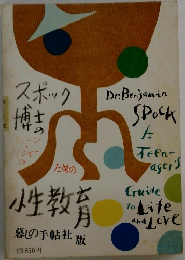 スポック
博士の
ティーン
エイジャーの
ための
性教育
暮しの手帖社版
¥850円
Dr. Benjamin
SPOCK
A
Teen-
ager's
Guide
to Life
and Love